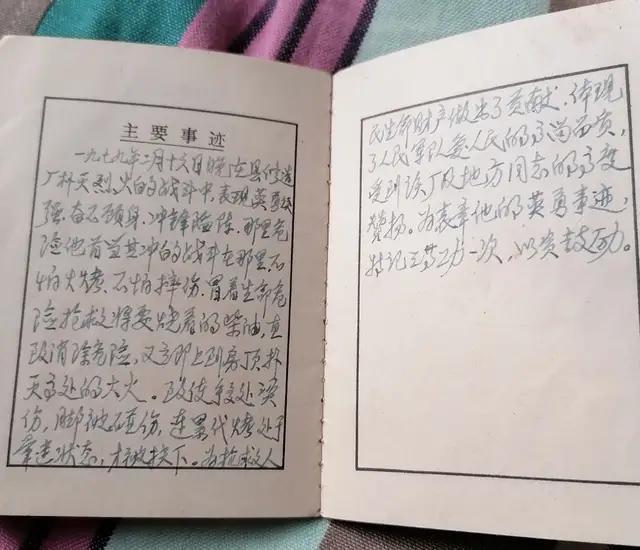 主要事迹
一九七九年二月十六日晚在县修造
厂扑灭烈火的战斗中，表现英勇顽
强、奋不顾身、冲锋险阵、那里危
险他首当其冲的战斗在那里，不
怕火烤、不怕摔伤、冒着生命危
险抢救将要烧着的柴油，直
至消除危险，又立即上到房顶扑
灭高处的大火。致使多处烫
伤，脚被碰伤，连累代烤处于
晕迷状态，才被扶下。为抢救人
民生命财产做出了贡献，体现
了人民军队爱人民的高尚品质，
受到该厂及地方同志的高度
赞扬。为表彰他的英勇事迹，
特记三等功一次，以资鼓励。